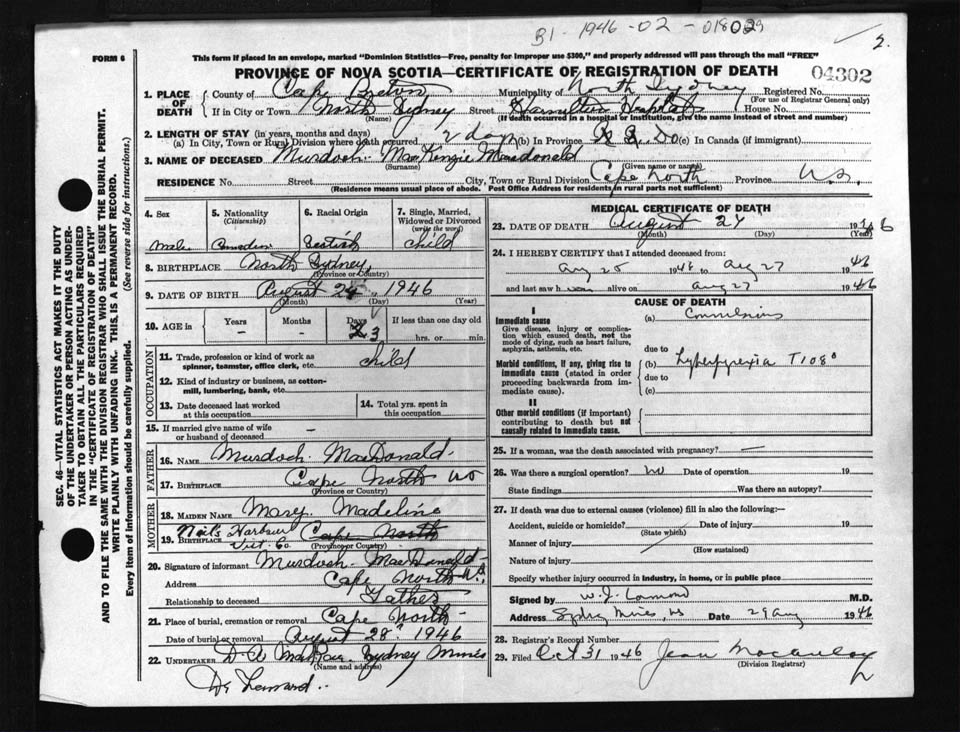 B1-1946-02-018029
2.
FORM 6
This form if placed in an envelope, marked "Dominion Statistics—Free, penalty for improper use $300," and properly addressed will pass through the mail "FREE"
PROVINCE OF NOVA SCOTIA—CERTIFICATE OF REGISTRATION OF DEATH
04302
1. PLACE OF DEATH
County of Cape Breton Municipality of North Sydney Registered No.
(For use of Registrar General only)
If in City or Town North Sydney Street Hamilton Hospital House No.
(Name) (If death occurred in a hospital or institution, give the name instead of street and number)
2. LENGTH OF STAY (in years, months and days)
(a) In City, Town or Rural Division where death occurred 2 days (b) In Province Do (c) In Canada (if immigrant)
3. NAME OF DECEASED Murdoch MacKenzie Macdonald
(Surname) (Given name or names)
RESIDENCE No. Street City, Town or Rural Division Cape North Province N.S.
(Residence means usual place of abode. Post Office Address for residents in rural parts not sufficient)
4. Sex
Male
5. Nationality
(Citizenship)
Canadian
6. Racial Origin
Scotish
7. Single, Married, Widowed or Divorced
(write the word)
child
8. BIRTHPLACE North Sydney
(Province or Country)
9. DATE OF BIRTH August 24, 1946
(Month) (Day) (Year)
10. AGE in
Years
—
Months
—
Days
3
If less than one day old
hrs. or min.
OCCUPATION
11. Trade, profession or kind of work as spinner, teamster, office clerk, etc. child
12. Kind of industry or business, as cotton-mill, lumbering, bank, etc.
13. Date deceased last worked at this occupation
14. Total yrs. spent in this occupation
15. If married give name of wife or husband of deceased —
FATHER
16. NAME Murdoch MacDonald
17. BIRTHPLACE Cape North NS
(Province or Country)
MOTHER
18. MAIDEN NAME Mary Madeline
19. BIRTHPLACE Neil's Harbour Cape North
Vict. Co.
(Province or Country)
20. Signature of informant Murdoch MacDonald
Address Cape North N.S.
Relationship to deceased Father
21. Place of burial, cremation or removal Cape North
Date of burial or removal August 28, 1946
22. UNDERTAKER Sydney Mines
(Name and address)
MEDICAL CERTIFICATE OF DEATH
23. DATE OF DEATH August 27 1946
(Month) (Day) (Year)
24. I HEREBY CERTIFY that I attended deceased from:
Aug 25 1946 to Aug 27 1946
and last saw h alive on Aug 27 1946
CAUSE OF DEATH
I
Immediate cause
Give disease, injury or complication which caused death, not the mode of dying, such as heart failure, asphyxia, asthenia, etc.
(a) Convulsions
due to
Morbid conditions, if any, giving rise to immediate cause (stated in order proceeding backwards from immediate cause).
(b) Hyperpyrexia T 108°
due to
(c)
II
Other morbid conditions (if important) contributing to death but not causally related to immediate cause.
25. If a woman, was the death associated with pregnancy? —
26. Was there a surgical operation? no Date of operation 19
State findings Was there an autopsy?
27. If death was due to external causes (violence) fill in also the following:—
Accident, suicide or homicide? Date of injury 19
(State which)
Manner of injury
(How sustained)
Nature of injury
Specify whether injury occurred in industry, in home, or in public place
Signed by M.D.
Address Sydney Mines, NS Date 29 Aug 1946
28. Registrar's Record Number
29. Filed Oct 31 1946 Jean Macaulay
(Division Registrar)
SEC. 46—VITAL STATISTICS ACT MAKES IT THE DUTY
OF THE UNDERTAKER OR PERSON ACTING AS UNDER-
TAKER TO OBTAIN ALL THE PARTICULARS REQUIRED
IN THE "CERTIFICATE OF REGISTRATION OF DEATH"
AND TO FILE THE SAME WITH THE DIVISION REGISTRAR WHO SHALL ISSUE THE BURIAL PERMIT.
WRITE PLAINLY WITH UNFADING INK. THIS IS A PERMANENT RECORD.
Every item of information should be carefully supplied. (See reverse side for instructions.)